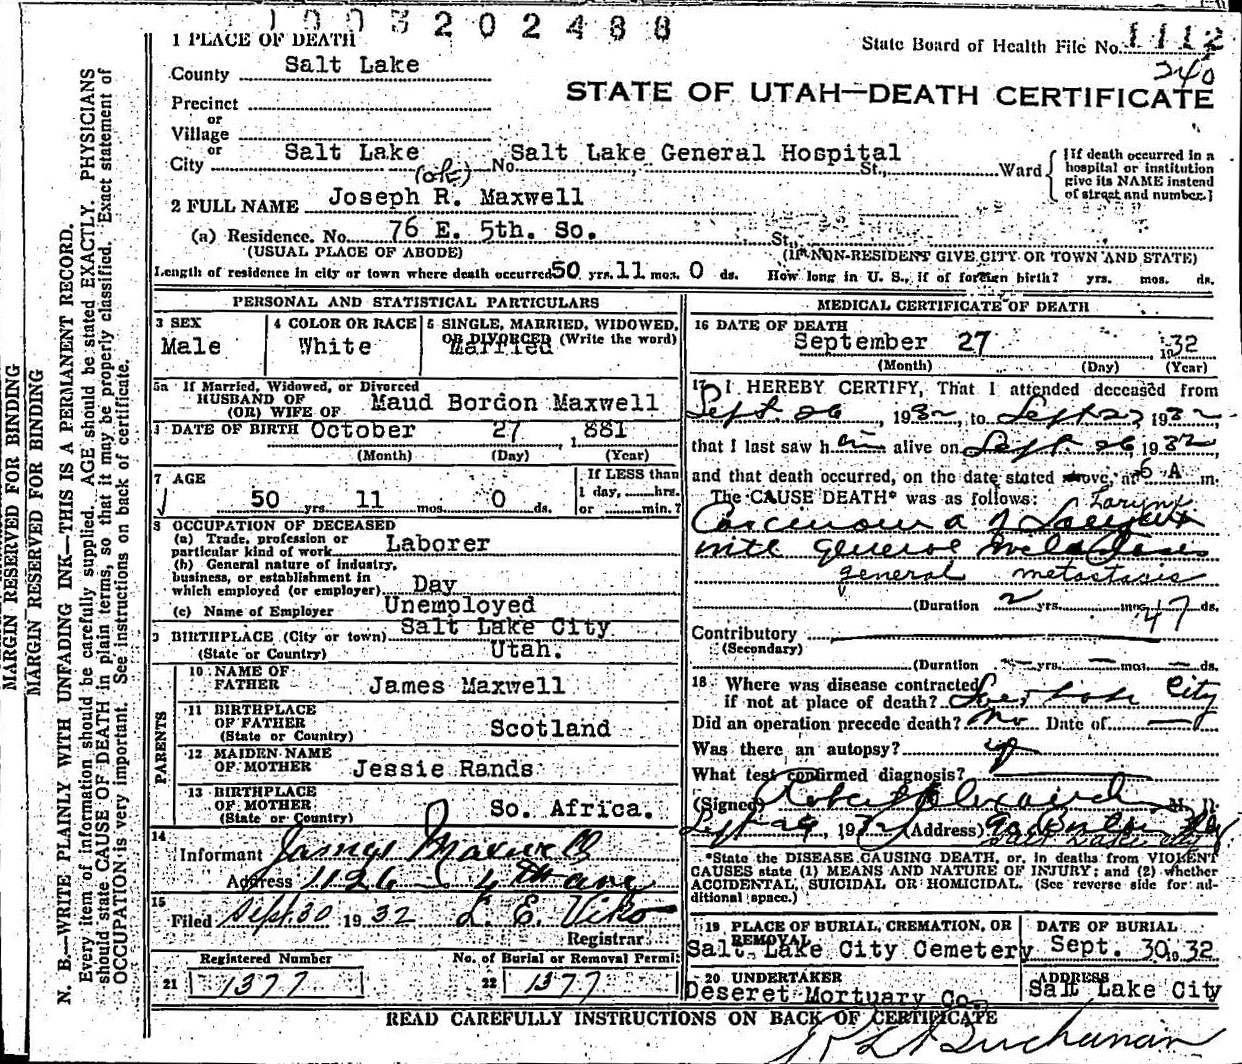 1003202488
State Board of Health File No. 1112
240
STATE OF UTAH—DEATH CERTIFICATE
1 PLACE OF DEATH
County Salt Lake
Precinct
or
Village
or
City Salt Lake (ok) No. Salt Lake General Hospital St., Ward
[If death occurred in a hospital or institution give its NAME instead of street and number.]
2 FULL NAME Joseph R. Maxwell
(a) Residence. No. 76 E. 5th. So. St.,
(USUAL PLACE OF ABODE) (IF NON-RESIDENT GIVE CITY OR TOWN AND STATE)
Length of residence in city or town where death occurred 50 yrs. 11 mos. 0 ds. How long in U. S., if of foreign birth? yrs. mos. ds.
PERSONAL AND STATISTICAL PARTICULARS
3 SEX
Male
4 COLOR OR RACE
White
5 SINGLE, MARRIED, WIDOWED,
OR DIVORCED (Write the word)
Married
5a If Married, Widowed, or Divorced
HUSBAND OF
(OR) WIFE OF Maud Bordon Maxwell
DATE OF BIRTH October 27, 1881
(Month) (Day) (Year)
7 AGE
50 yrs. 11 mos. 0 ds.
If LESS than
1 day, hrs.
or min.?
8 OCCUPATION OF DECEASED
(a) Trade, profession or
particular kind of work Laborer
(b) General nature of industry,
business, or establishment in
which employed (or employer) Day
(c) Name of Employer Unemployed
9 BIRTHPLACE (City or town) Salt Lake City
(State or Country) Utah.
PARENTS
10 NAME OF
FATHER James Maxwell
11 BIRTHPLACE
OF FATHER
(State or Country) Scotland
12 MAIDEN NAME
OF MOTHER Jessie Rands
13 BIRTHPLACE
OF MOTHER
(State or Country) So. Africa.
14
Informant James Maxwell
Address 1126 4th ave
15
Filed Sept. 30 1932 L. E. Viko
Registrar
Registered Number No. of Burial or Removal Permit
21 1377 22 1377
MEDICAL CERTIFICATE OF DEATH
16 DATE OF DEATH
September 27 1932
(Month) (Day) (Year)
17 I HEREBY CERTIFY, That I attended deceased from
Sept. 26 1932, to Sept 27 1932
that I last saw him alive on Sept. 26 1932
and that death occurred, on the date stated above, at 6 A m.
The CAUSE DEATH* was as follows:
Larynx
Carcinoma of Larynx
with general metastases
general metastasis
(Duration 2 yrs. mos. ds.
47
Contributory
(Secondary)
(Duration — yrs. — mos. — ds.
18 Where was disease contracted
if not at place of death? City
Did an operation precede death? No Date of —
Was there an autopsy?
What test confirmed diagnosis?
(Signed) Robert M. D.
Sept 29, 1932 (Address)
Salt Lake City
*State the DISEASE CAUSING DEATH, or, in deaths from VIOLENT
CAUSES state (1) MEANS AND NATURE OF INJURY; and (2) whether
ACCIDENTAL, SUICIDAL OR HOMICIDAL. (See reverse side for additional space.)
19 PLACE OF BURIAL, CREMATION, OR
REMOVAL
Salt Lake City Cemetery
DATE OF BURIAL
Sept. 30, 1932
20 UNDERTAKER
Deseret Mortuary Co.
ADDRESS
Salt Lake City
READ CAREFULLY INSTRUCTIONS ON BACK OF CERTIFICATE
Buchanan
MARGIN RESERVED FOR BINDING
MARGIN RESERVED FOR BINDING
N. B.—WRITE PLAINLY WITH UNFADING INK—THIS IS A PERMANENT RECORD.
Every item of information should be carefully supplied. AGE should be stated EXACTLY. PHYSICIANS
should state CAUSE OF DEATH in plain terms, so that it may be properly classified. Exact statement of
OCCUPATION is very important. See instructions on back of certificate.